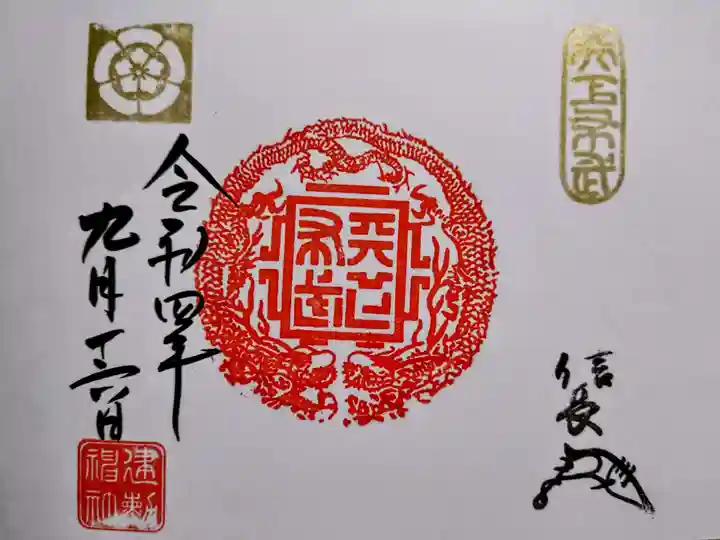 天下布武
天下
布武
信長
令和四年
九月十六日
建勲
神社